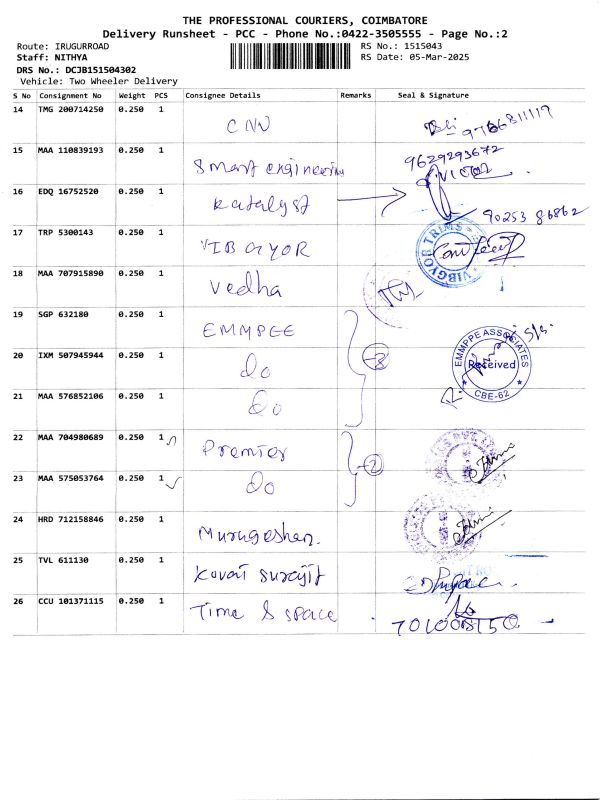 THE PROFESSIONAL COURIERS, COIMBATORE
Delivery Runsheet - PCC - Phone No.:0422-3505555 - Page No.:2
Route: IRUGURROAD RS No.: 1515043
Staff: NITHYA RS Date: 05-Mar-2025
DRS No.: DCJB151504302
Vehicle: Two Wheeler Delivery
S No Consignment No Weight PCS Consignee Details Remarks Seal & Signature
14 TMG 200714250 0.250 1 CNN 9786811119
15 MAA 110839193 0.250 1 Smart engineering 9629293672
VICTOR
16 EDQ 16752520 0.250 1 Katalyst 90253 86862
17 TRP 5300143 0.250 1 VIBGYOR VIBGYOR TRIMS
18 MAA 707915890 0.250 1 Vedha
19 SGP 632180 0.250 1 EMMPEE
20 IXM 507945944 0.250 1 do 3 EMMPPE ASSOCIATES Received CBE-62
21 MAA 576852106 0.250 1 do
22 MAA 704980689 0.250 1 Premier
23 MAA 575053764 0.250 1 do 2
24 HRD 712158846 0.250 1 Murugeshan.
25 TVL 611130 0.250 1 Kovai Surajit
26 CCU 101371115 0.250 1 Time & space